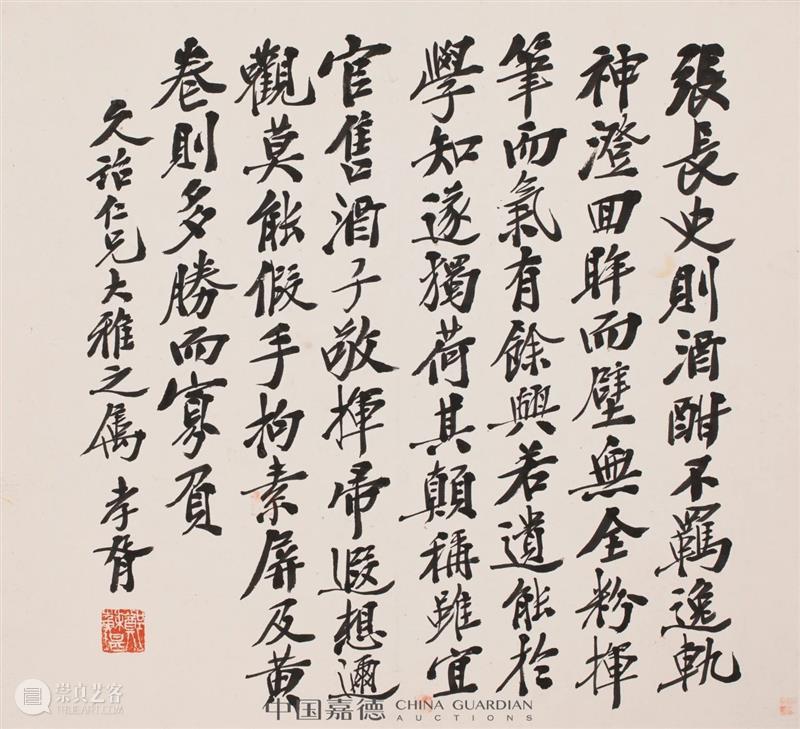 張長史則酒酣不羈逸軌
神澄回眸而壁無全粉揮
筆而氣有餘興若遺能於
學知遂獨荷其顛稱雖宜
官售酒子敬揮帚遐想邇
觀莫能假手拘素屏及黃
卷則多勝而寡負
仁兄大雅之屬 孝胥
崇真艺客
TRUEART.COM
中国嘉德 CHINA GUARDIAN
AUCTIONS